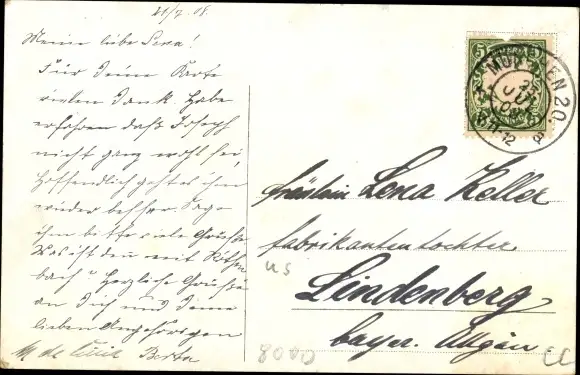 21/7 08.
Meine liebe Lena!
Für Deine Karte
vielen Dank. Habe
erfahren daß Joseph
nicht ganz wohl sei,
hoffentlich geht es ihm
wieder besser. Sage
ihm bitte viele Grüße.
Was ist den mit
bach? Herzliche Grüße
an Dich und Deine
lieben Angehörigen
Berta
5
MÜNCHEN 20.
JUL
Fräulein Lena Keller
Fabrikantentochter
Lindenberg
bayer. Allgäu
us
8000